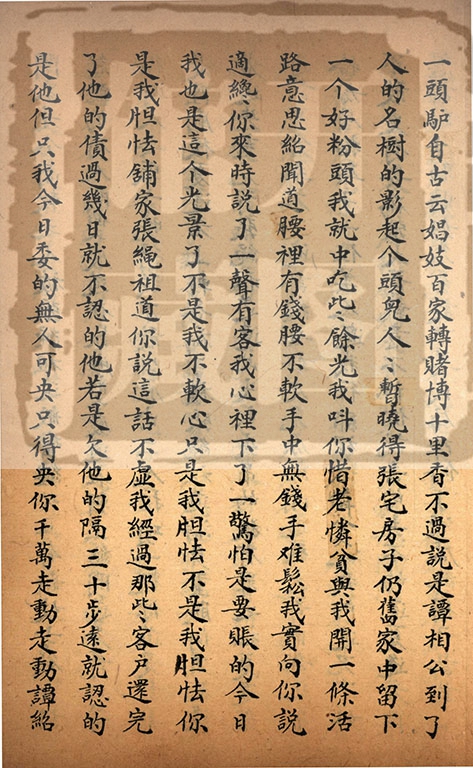 一頭馿自古云娼妓百家轉賭博十里香不過說是譚相公到了
人的名樹的影起个頭兒人〻暫曉得張宅房子仍舊家中留下
一个好粉頭我就中吃此〻餘光我呌你惜老憐貧與我開一條活
路意思紹聞道腰裡有錢腰不軟手中無錢手难鬆我實向你說
適纔〻你來時説了一聲有客我心裡下了一驚怕是要賬的今日
我也是這个光景了不是我不軟心只是我胆怯不是我胆怯你
是我胆怯鋪家張繩祖道你說這話不虛我經過那些〻客户還完
了他的債過幾日就不認的他若是欠他的隔三十步遠就認的
是他但只我今日委的無人可央只得央你千萬走動走動譚紹